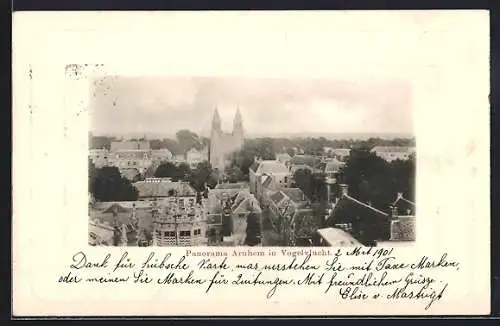 Panorama Arnhem in Vogelvlucht.
2 Mrt 1901
Dank für hübsche Karte, was verstehen Sie mit Taxe Marken,
oder meinen Sie Marken für Zeitungen. Mit freundlichem Grüsze
Elise v. Mastrigt